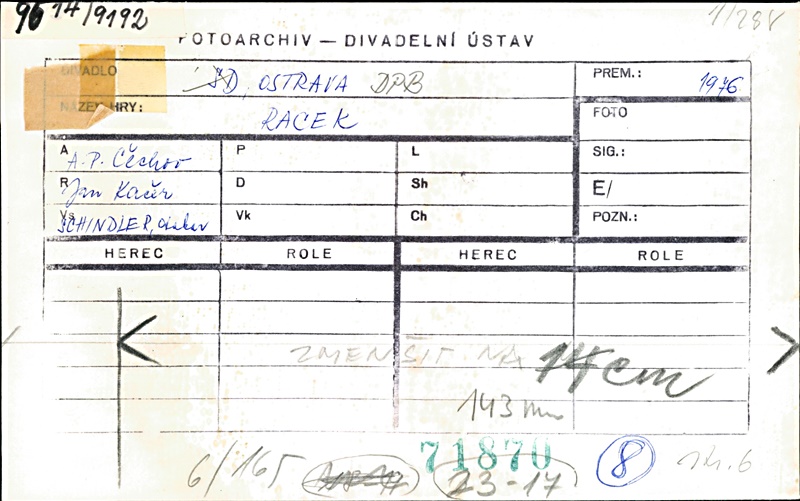 96 14/9192
1/288
FOTOARCHIV — DIVADELNÍ ÚSTAV
DIVADLO SD, OSTRAVA DPB PREM.: 1976
NÁZEV HRY: RACEK FOTO
A A. P. Čechov P L SIG.:
R Jan Kačer D Sh E/
Vs SCHINDLER, Vk Ch POZN.:
HEREC ROLE HEREC ROLE
ZMENŠIT NA 14 cm
143 mm
6/165 71870 23-17 8